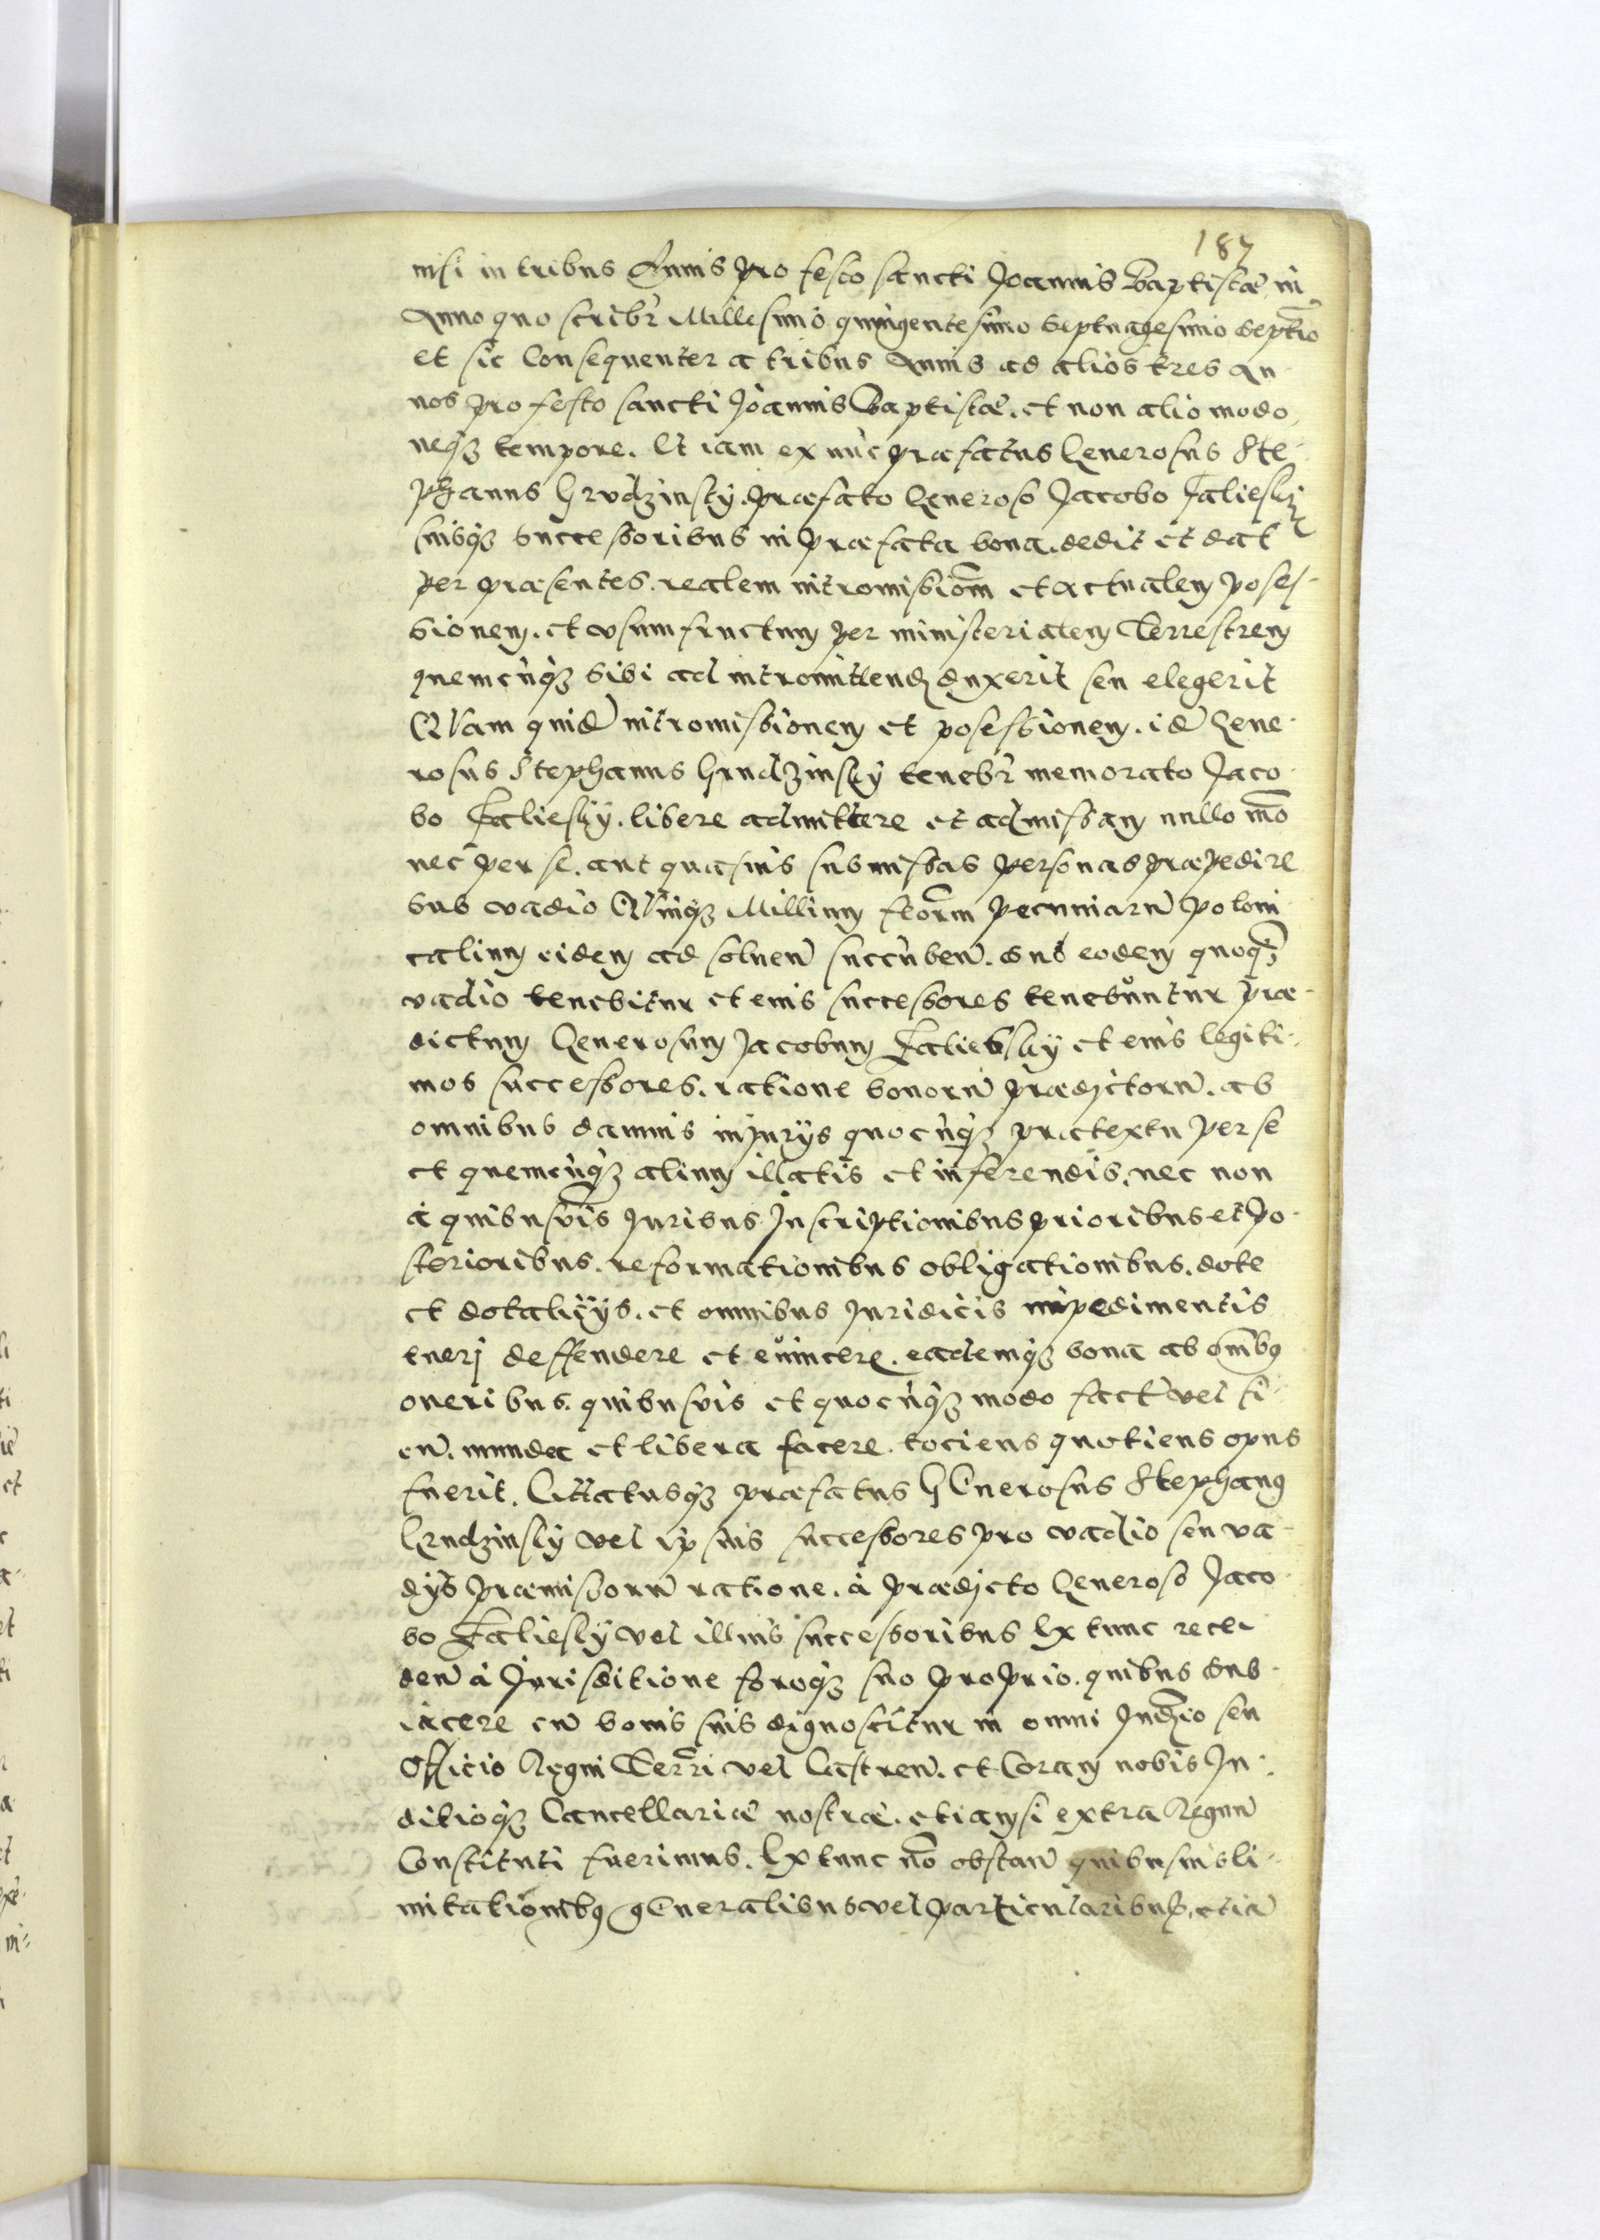 187
nisi in tribus Annis pro festo sancti Joannis Baptistæ in
Anno quo scribr̃ Millesimo quingentesimo septuagesimo septīo
et sic Consequenter a tribus Annis ad alios tres An-
nos pro festo sancti Joannis Baptistæ. et non alio modo
neqз tempore. Et iam ex nūc præfatus Generosus Ste-
phanus Grudzinsky. præfato Generoso Jacobo Zalieskÿ
suisqз Successoribus in præfata bona. dedit et dat
per præsentes. realem intromissiōm et actualem posses-
sionem. et usumfructum per ministerialem Terrestrem
quemcūqз sibi ad intromittend duxerit seu elegerit
Quam quidē intromissionem et posessionem. idē Gene-
rosus Stephanus Grudzinskÿ tenebr̃ memorato Jaco-
bo Zalieskÿ. libere admittere et admissam nullo mō
nec per se. aut quasuis submissas personas præpedire
sub vadio Quinqз Millium florm̃ pecuniarū poloni-
calium eidem ad soluen̄ succūben̄. sub eodem quoqз
vadio tenebitur et eius successores tenebuntur præ-
dictum Generosum Jacobum Zaliebskÿ et eius legiti-
mos successores. ratione bonorū prædictorū. ab
omnibus damnis iniurÿs quocūqз prætextu per se
et quemcūqз alium illatis et inferendis. nec non
à quibusvis Juribus Inscriptionibus prioribus et po-
sterioribus. reformationibus obligationibus. dote
et dotalicÿs. et omnibus Juridicis impedimentis
tueri deffendere et euincere. eademqз bona ab om̃bꝰ
oneribus. quibusuis et quocūqз modo fact̄ vel fi-
en̄. munda et libera facere. tociens quotiens opus
fuerit. Cittatusqз præfatus GEnerosus Stephanꝰ
Grudzinskÿ vel ip̄ suis successores pro vadio seu va-
dÿs præmissorū ratione. à prædicto Generoso Jaco-
bo Zalieskÿ vel illius successoribus Ex tunc rece-
den̄ à Jurisditione foroqз suo proprio. quibus sub-
iacere cū bonis suis dignoscitur in omni Judīo seu
Officio Regni Terrī vel Castren̄. et Coram nobis Ju-
ditioqз Cancellariæ nostræ. etiamsi extra Regnū
Constituti fuerimus. Ex tunc nō obstan̄ quibusuis li-
mitationibꝰ gEneralibus vel particularibus. etiā